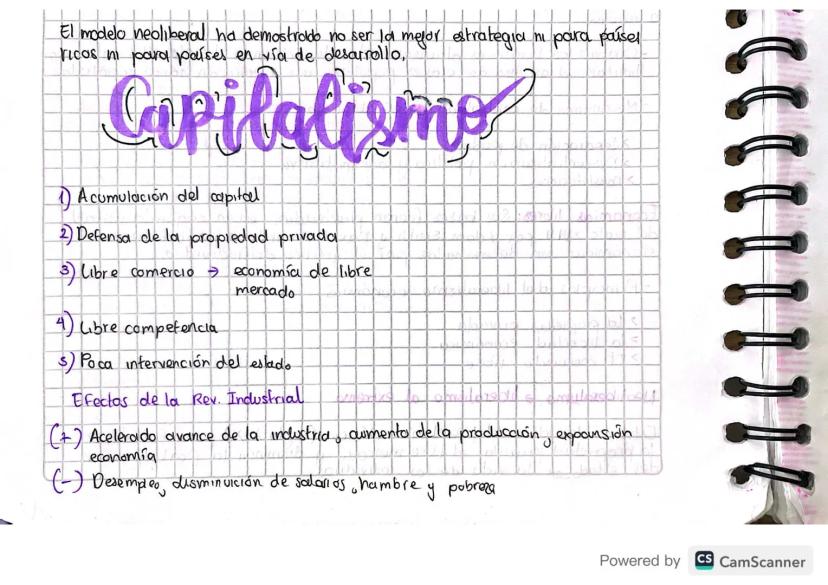 El modelo neoliberal ha demostrado no ser la mejor estrategia ni para países
ricos ni para países en vía de desarrollo.
Capitalismo
1) Acumulación del capital
2) Defensa de la propiedad privada
3) Libre comercio → economía de libre
mercado
4) Libre competencia
5) Poca intervención del estado
Efectos de la Rev. Industrial
(+) Acelerado avance de la industria, aumento de la producción, expansión
economía
(-) Desempleo, disminuición de salarios, hambre y pobreza
Powered by CS CamScanner